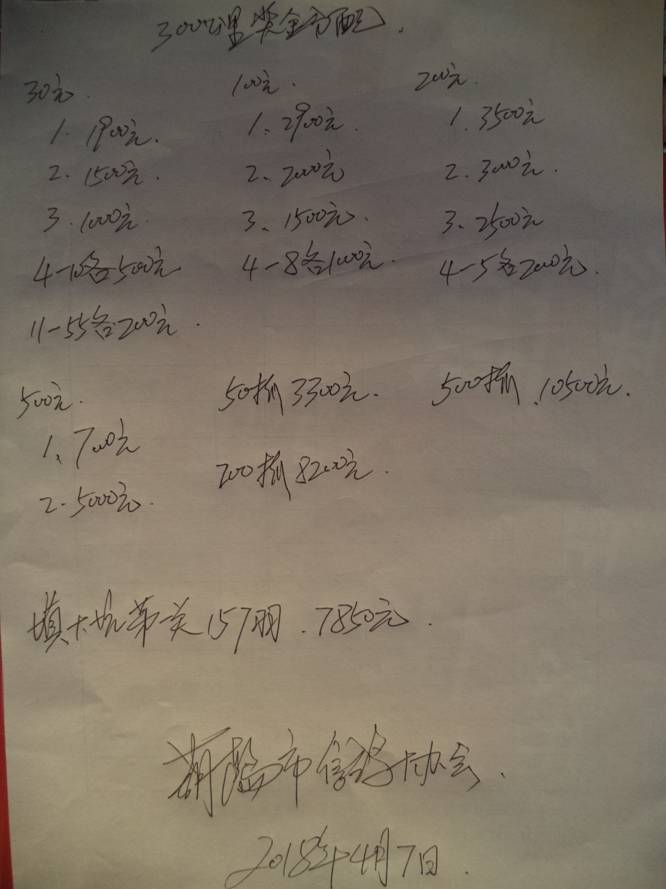 300公里奖金分配.
30元. 100元. 200元.
1. 1900元. 1、2900元. 1、3500元
2. 1500元. 2、2000元 2、3000元.
3. 1000元. 3、1500元. 3、2500元
4-10各500元 4-8各1000元. 4-5各2000元.
11-55各200元.
500元. 50抓3300元. 500抓.10500元.
1、7000元
200抓8200元.
2.5000元.
157羽.7850元.
市信鸽协会.
2018年4月7日.